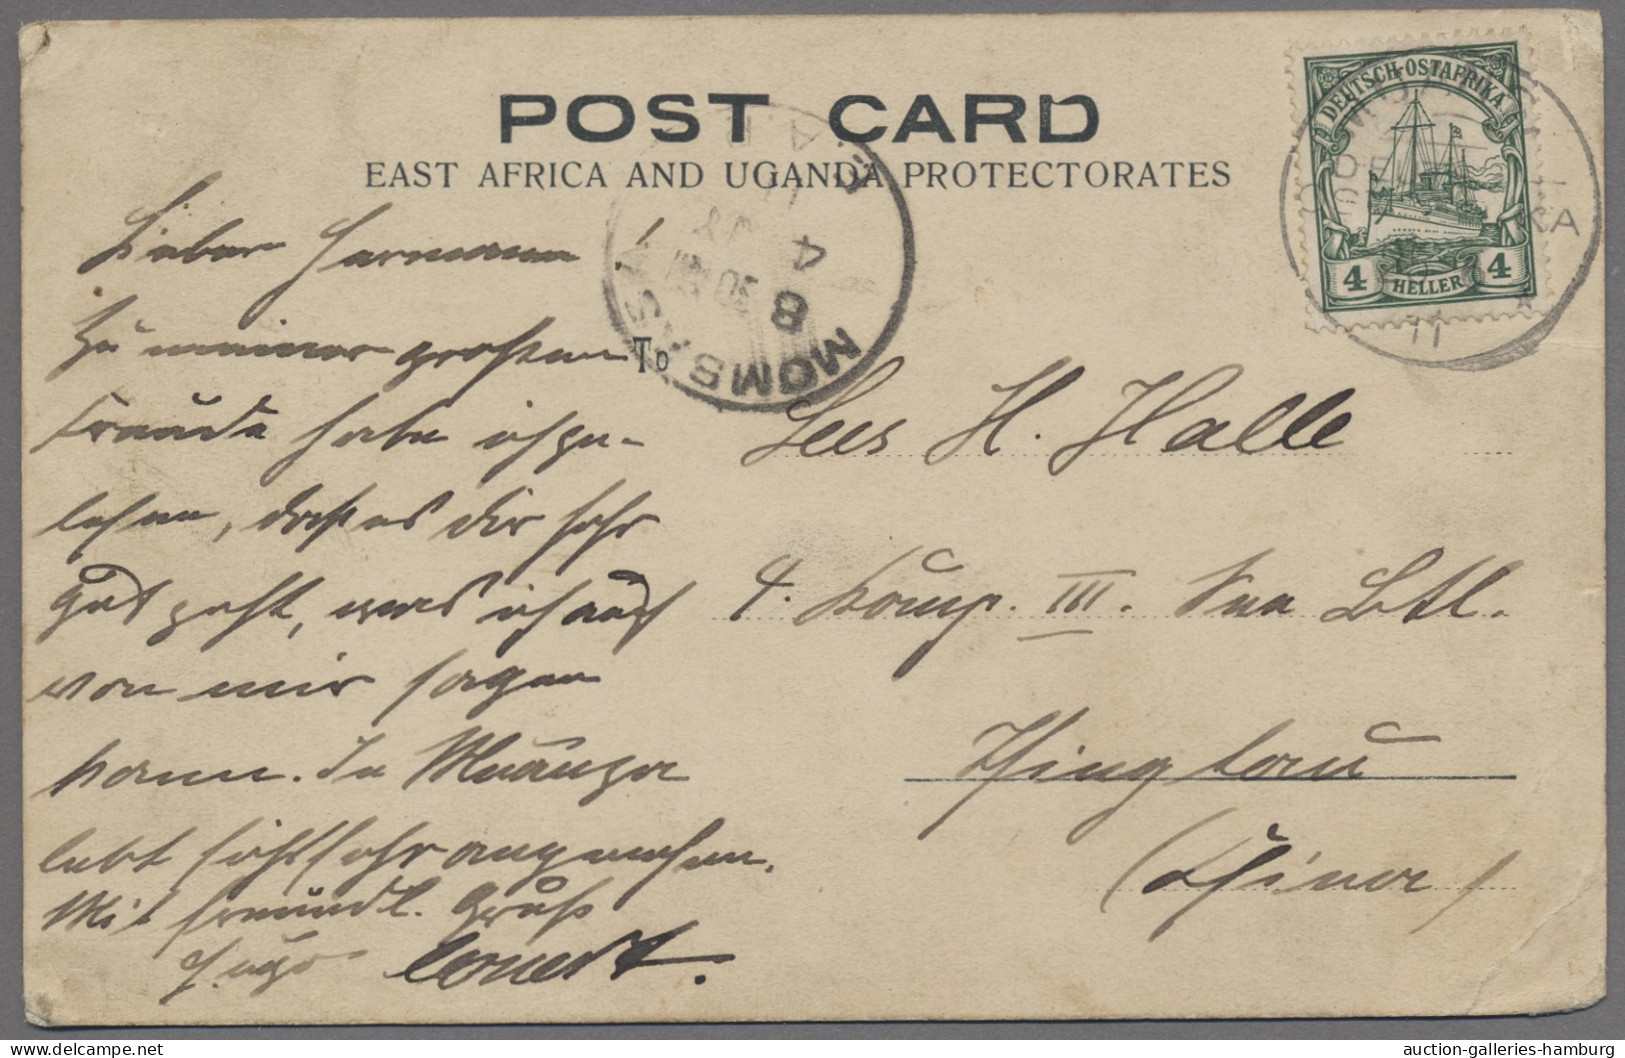 POST CARD
EAST AFRICA AND UGANDA PROTECTORATES
DEUTSCH-OSTAFRIKA
4 HELLER 4
MOMBASA
8
4
11
Lieber Hermann!
Zu meiner großen
Freude habe ich ge-
lesen, daß es dir sehr
gut geht, was ich auch
von mir sagen
kann. In Muanza
lebt sichs sehr angenehm.
Mit freundl. Gruß
Hugo
To
H. Halle
4. Komp. III. See Btl.
Tsingtau
(China)
auction-galleries-hamburg